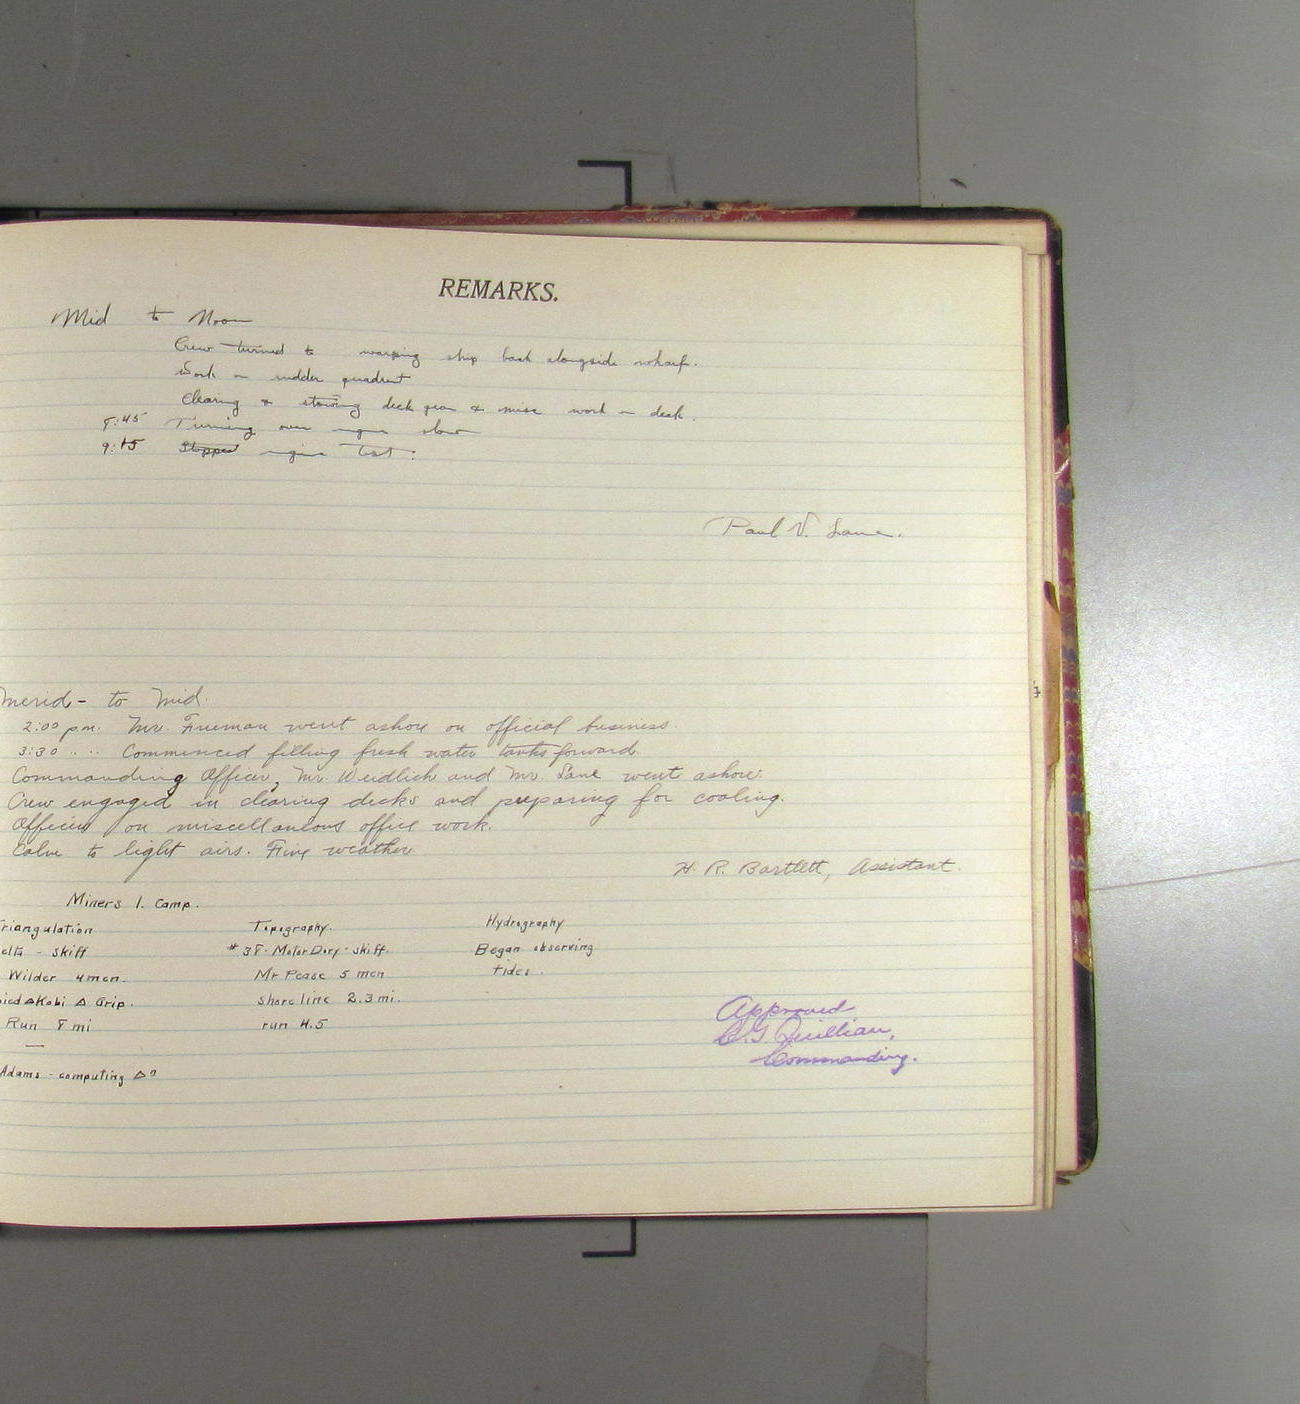 REMARKS.
Mid to Noon
Crew turned to warping ship back alongside wharf.
Work on rudder quadrant
Clearing & stowing deck gear & misc work on deck.
8:45 Turning over engine slow
9:15 Stopped engine test.
Paul V. Lane.
Merid - to Mid.
2:00 p.m. Mr. Freeman went ashore on official business.
3:30 " " Commenced filling fresh water tanks forward.
Commanding Officer, Mr. Weidlich and Mr. Lane went ashore.
Crew engaged in clearing decks and preparing for coaling.
Officers on miscellaneous office work.
Calm to light airs. Fine weather.
H. R. Bartlett, Assistant.
Miners I. Camp.
Triangulation Topography. Hydrography
elta - skiff #38 - Motor Dory - skiff. Began observing
Wilder 4 men. Mr Pease 5 men tides.
ied △ Kobi △ Grip. shore line 2.3 mi.
Run 8 mi run 4.5
Adams - computing △s
Approved
C.G. Quillian,
Commanding.